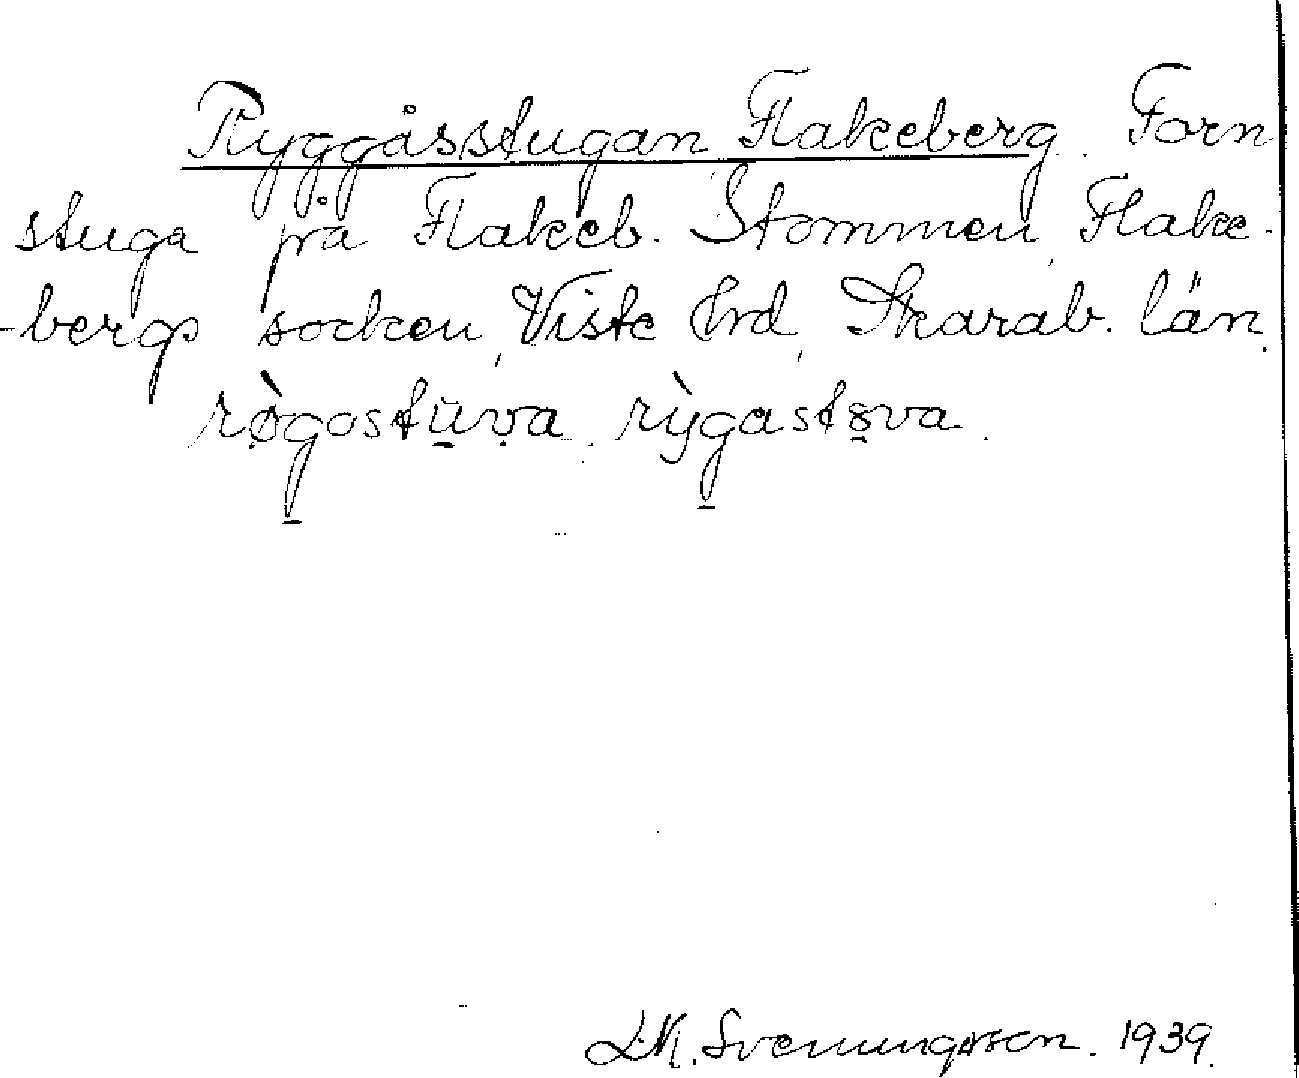 Ryggåsstugan Flakeberg. Forn
stuga på Flakeb. Stommen, Flake-
-bergs socken, Viste hrd, Skarab. län.
rø̀gostūva. rỳgastøva.
J.M. Svenungsson. 1939.